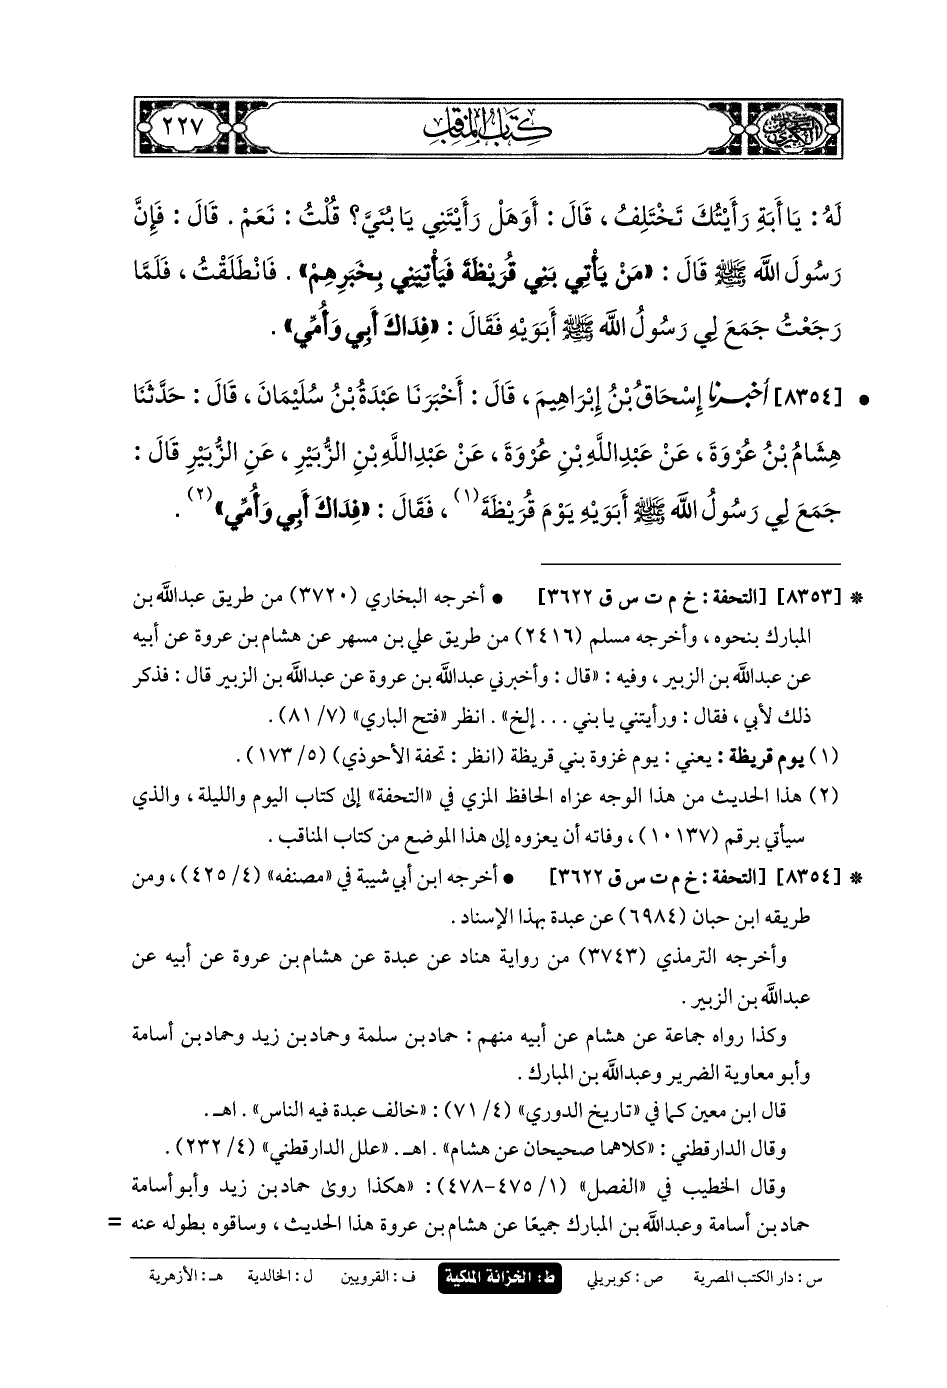 كتاب المناقب
٢٢٧
لَهُ : يَا أَبَةِ رَأَيْتُكَ تَخْتَلِفُ ، قَالَ : أَوَهَلْ رَأَيْتَنِي يَا بُنَيَّ؟ قُلْتُ : نَعَمْ . قَالَ : فَإِنَّ
رَسُولَ اللَّهِ ﷺ قَالَ : «مَنْ يَأْتِي بَنِي قُرَيْظَةَ فَيَأْتِيَنِي بِخَبَرِهِمْ» . فَانْطَلَقْتُ ، فَلَمَّا
رَجَعْتُ جَمَعَ لِي رَسُولُ اللَّهِ ﷺ أَبَوَيْهِ فَقَالَ : «فِدَاكَ أَبِي وَأُمِّي» .
• [٨٣٥٤] أَخْبَرَنَا إِسْحَاقُ بْنُ إِبْرَاهِيمَ ، قَالَ : أَخْبَرَنَا عَبْدَةُ بْنُ سُلَيْمَانَ ، قَالَ : حَدَّثَنَا
هِشَامُ بْنُ عُرْوَةَ ، عَنْ عَبْدِ اللَّهِ بْنِ عُرْوَةَ ، عَنْ عَبْدِ اللَّهِ بْنِ الزُّبَيْرِ ، عَنِ الزُّبَيْرِ قَالَ :
جَمَعَ لِي رَسُولُ اللَّهِ ﷺ أَبَوَيْهِ يَوْمَ قُرَيْظَةَ (١) ، فَقَالَ : «فِدَاكَ أَبِي وَأُمِّي» (٢) .
* [٨٣٥٣] [التحفة : خ م ت س ق ٣٦٢٢] • أخرجه البخاري (٣٧٢٠) من طريق عبدالله بن
المبارك بنحوه ، وأخرجه مسلم (٢٤١٦) من طريق علي بن مسهر عن هشام بن عروة عن أبيه
عن عبدالله بن الزبير ، وفيه : «قال : وأخبرني عبدالله بن عروة عن عبدالله بن الزبير قال : فذكر
ذلك لأبي ، فقال : ورأيتني يا بني . . . إلخ» . انظر «فتح الباري» (٧/ ٨١) .
(١) يوم قريظة : يعني : يوم غزوة بني قريظة (انظر : تحفة الأحوذي) (٥/ ١٧٣) .
(٢) هذا الحديث من هذا الوجه عزاه الحافظ المزي في «التحفة» إلى كتاب اليوم والليلة ، والذي
سيأتي برقم (١٠١٣٧) ، وفاته أن يعزوه إلى هذا الموضع من كتاب المناقب .
* [٨٣٥٤] [التحفة : خ م ت س ق ٣٦٢٢] • أخرجه ابن أبي شيبة في «مصنفه» (٤/ ٤٢٥) ، ومن
طريقه ابن حبان (٦٩٨٤) عن عبدة بهذا الإسناد .
وأخرجه الترمذي (٣٧٤٣) من رواية هناد عن عبدة عن هشام بن عروة عن أبيه عن
عبدالله بن الزبير .
وكذا رواه جماعة عن هشام عن أبيه منهم : حماد بن سلمة وحماد بن زيد وحماد بن أسامة
وأبو معاوية الضرير وعبدالله بن المبارك .
قال ابن معين كما في «تاريخ الدوري» (٤/ ٧١) : «خالف عبدة فيه الناس» . اهـ .
وقال الدارقطني : «كلاهما صحيحان عن هشام» . اهـ . «علل الدارقطني» (٤/ ٢٣٢) .
وقال الخطيب في «الفصل» (١/ ٤٧٥-٤٧٨) : «هكذا روى حماد بن زيد وأبو أسامة
حماد بن أسامة وعبدالله بن المبارك جميعًا عن هشام بن عروة هذا الحديث ، وساقوه بطوله عنه =
س : دار الكتب المصرية ص : كوبريلي ط : الخزانة الملكية ف : القرويين ل : الخالدية هـ : الأزهرية